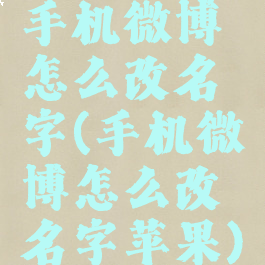 手机微博
怎么改名
字(手机微
博怎么改
名字苹果)